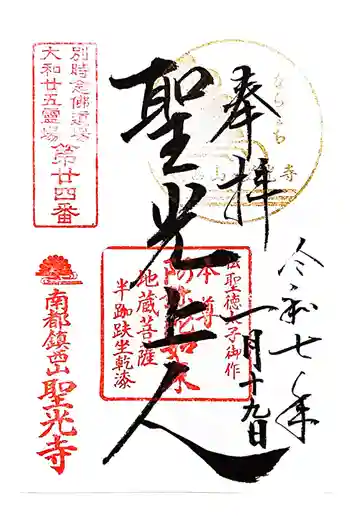 奉拝
令和七年
一月十九日
聖光上人
別時念佛道場
大和廿五霊場
第廿四番
伝聖徳太子御作
本尊
阿弥陀如来
地蔵菩薩
半跏趺坐乾漆
南都鎮西山
聖光寺